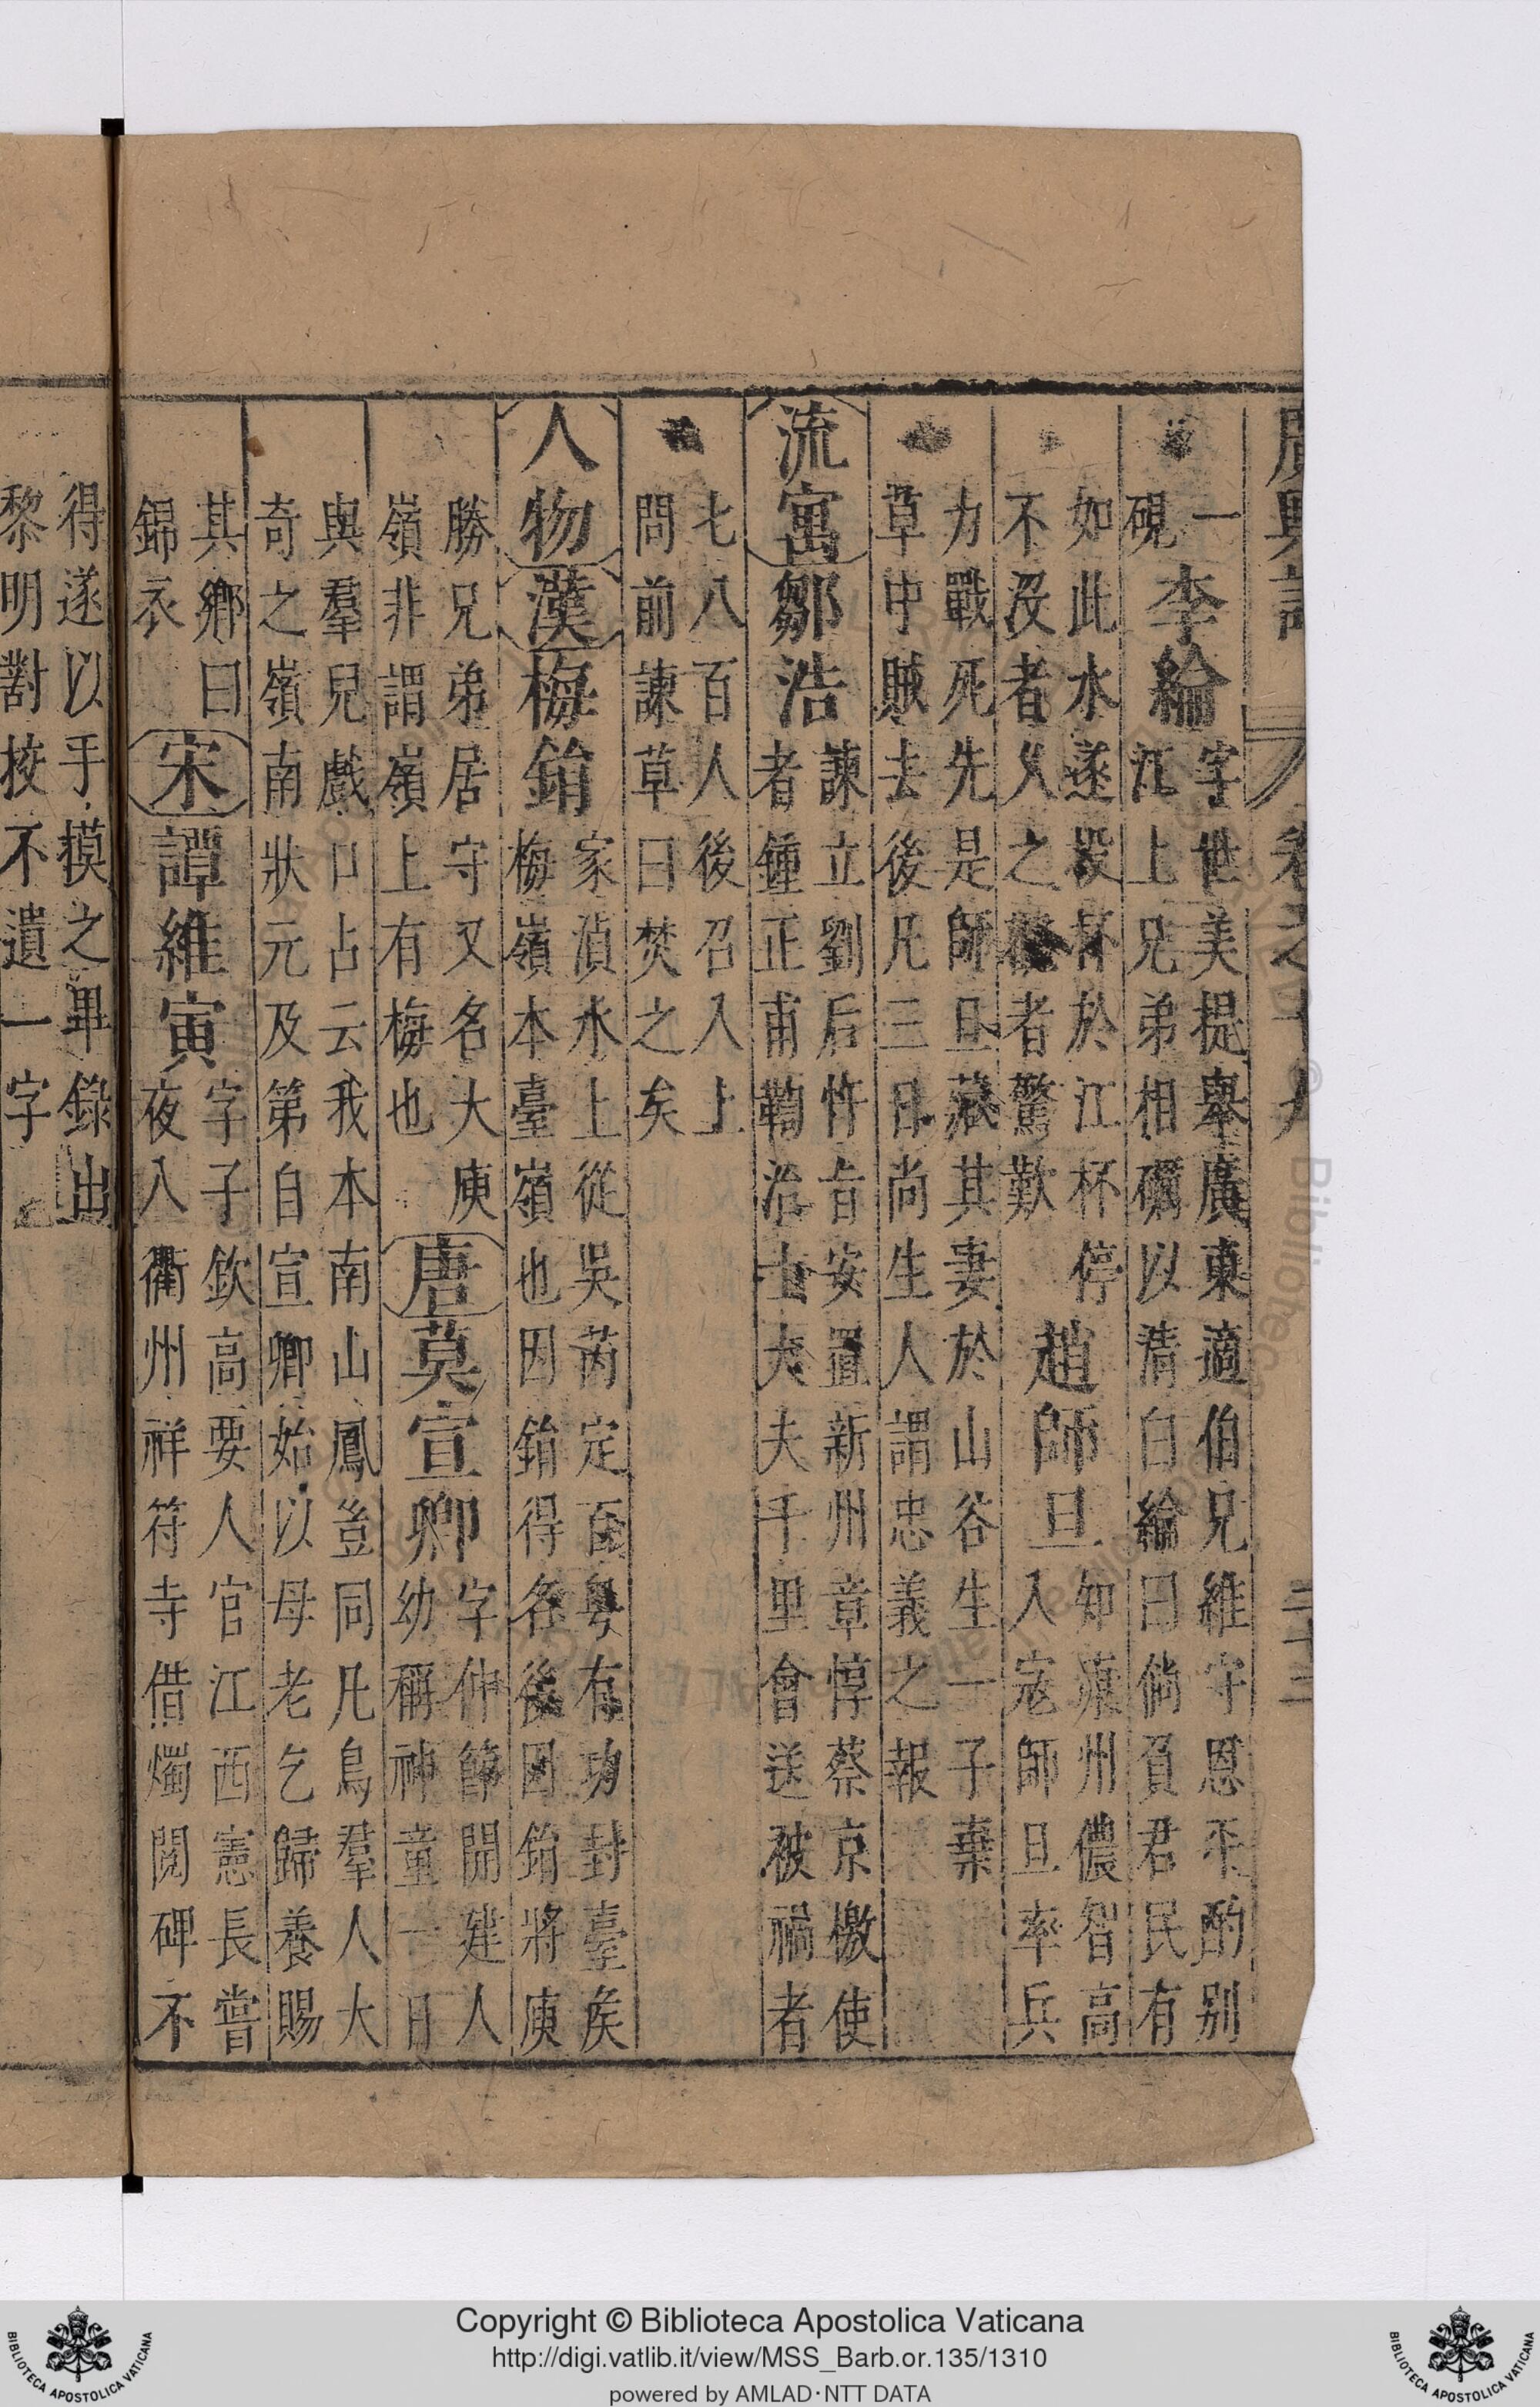 廣輿記 卷之十九 二十三
一李綸字世美提舉廣東適伯兄維守恩平酌別
硯江上兄弟相礪以清白綸曰倘負君民有
如此水遂投杯於江杯停趙師旦知康州儂智高
不沒者久之觀者驚歎入寇師旦率兵
力戰死先是師旦藏其妻於山谷生一子棄
草中賊去後凡三日尚生人謂忠義之報
流寓鄒浩諫立劉后忤旨安置新州章惇蔡京檄使
者鍾正甫鞫治士大夫千里會送被禍者
七八百人後召入上
問前諫草曰焚之矣
人物漢梅鋗家湞水上從吳芮定百粤有功封臺矦
梅嶺本臺嶺也因鋗得名後因鋗將庾
勝兄弟居守又名大庾唐莫宣卿字仲節開建人
嶺非謂嶺上有梅也幼稱神童一日
與羣兒戲口占云我本南山鳳豈同凡鳥羣人大
奇之嶺南狀元及第自宣卿始以母老乞歸養賜
其鄉曰宋譚維寅字子欽高要人官江西憲長嘗
錦衣夜入衢州祥符寺借燭閱碑不
得遂以手摸之畢錄出
黎明對挍不遺一字
Copyright © Biblioteca Apostolica Vaticana
http://digi.vatlib.it/view/MSS_Barb.or.135/1310
powered by AMLAD·NTT DATA
BIBLIOTECA APOSTOLICA VATICANA
BIBLIOTECA APOSTOLICA VATICANA